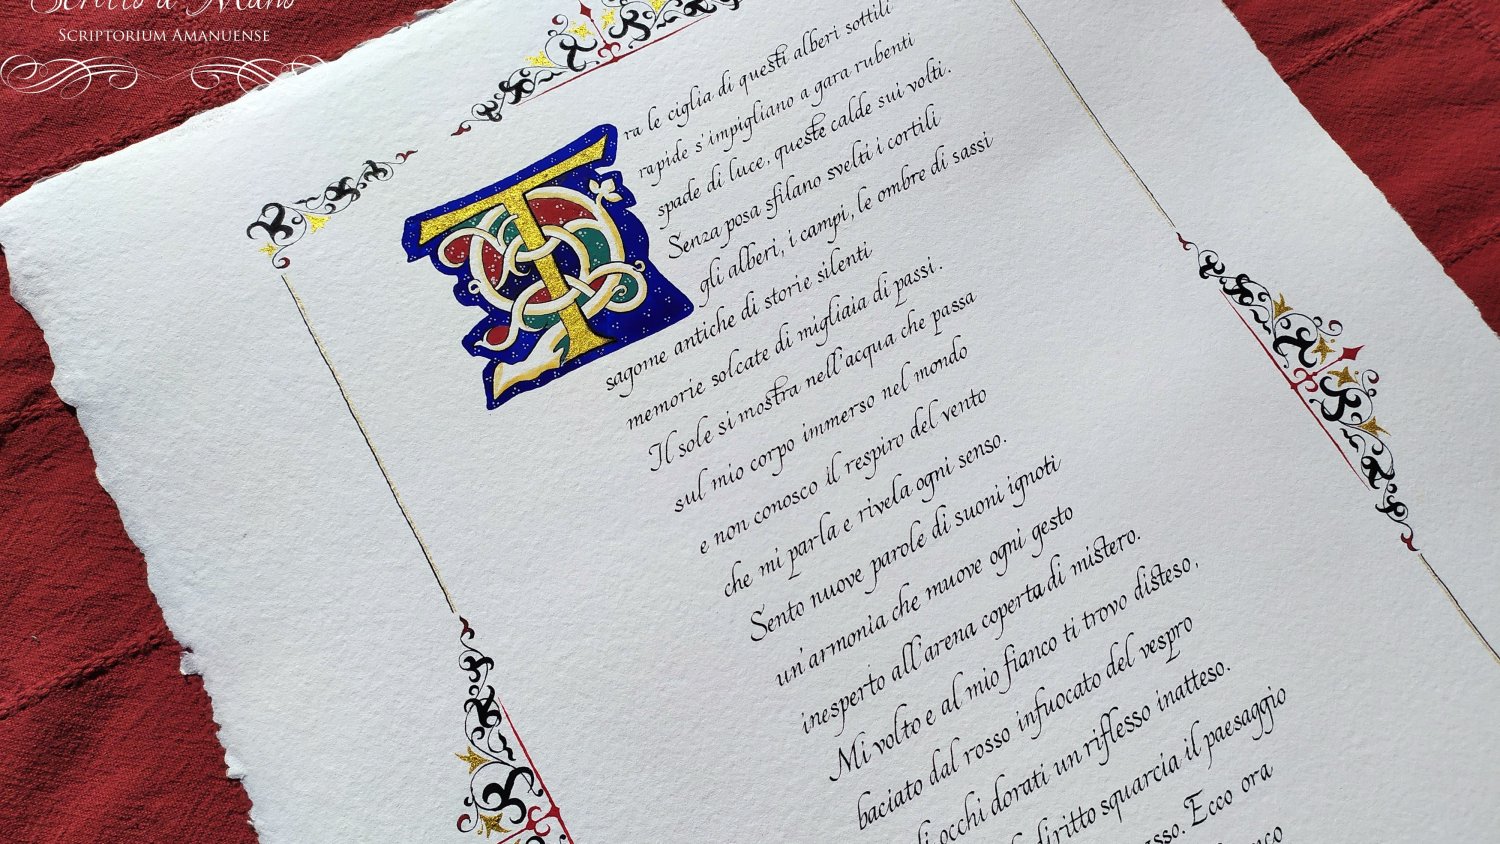 Scritto a Mano
SCRIPTORIUM AMANUENSE
Tra le ciglia di questi alberi sottili
rapide s'impigliano a gara rubenti
spade di luce, queste calde sui volti.
Senza posa sfilano svelti i cortili
gli alberi, i campi, le ombre di sassi
sagome antiche di storie silenti
memorie solcate di migliaia di passi.
Il sole si mostra nell'acqua che passa
sul mio corpo immerso nel mondo
e non conosco il respiro del vento
che mi parla e rivela ogni senso.
Sento nuove parole di suoni ignoti
un'armonia che muove ogni gesto
inesperto all'arena coperta di mistero.
Mi volto e al mio fianco ti trovo disteso,
baciato dal rosso infuocato del vespro
occhi dorati un riflesso inatteso.
diritto squarcia il paesaggio
Ecco ora